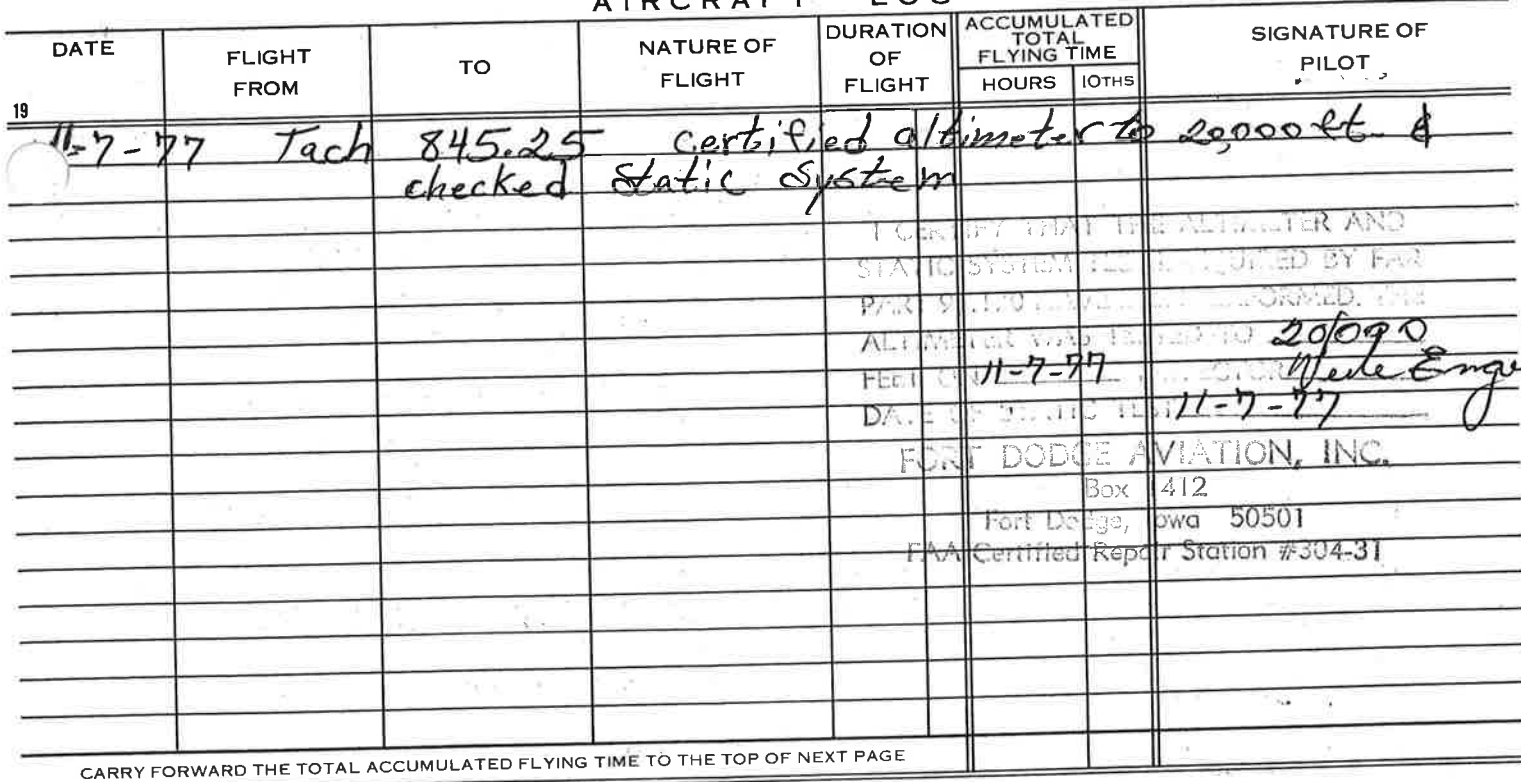 AIRCRAFT LOG
DATE FLIGHT FROM TO NATURE OF FLIGHT DURATION OF FLIGHT ACCUMULATED TOTAL FLYING TIME HOURS 10THS SIGNATURE OF PILOT
19
11-7-77 Tach 845.25 certified altimeter to 20,000 ft. &
checked Static System
I CERTIFY THAT THE ALTIMETER AND
STATIC SYSTEM REQUIRED BY FAR
PART PERFORMED. THE
ALTIMETER WAS TESTED TO 20,000
FEET ON 11-7-77
DATE OF STATIC TEST 11-7-77
FORT DODGE AVIATION, INC.
Box 1412
Fort Dodge, Iowa 50501
FAA Certified Repair Station #304-31
CARRY FORWARD THE TOTAL ACCUMULATED FLYING TIME TO THE TOP OF NEXT PAGE